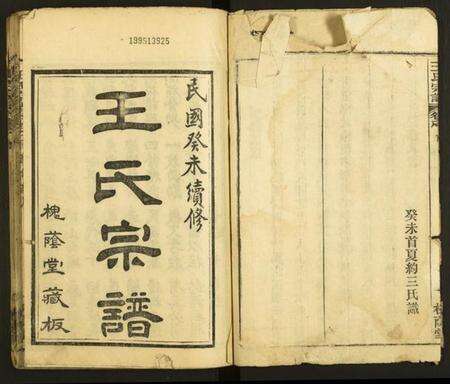 199513925
民國癸未續修
王氏宗譜
槐蔭堂藏板
王氏宗譜
癸未首夏約三氏識